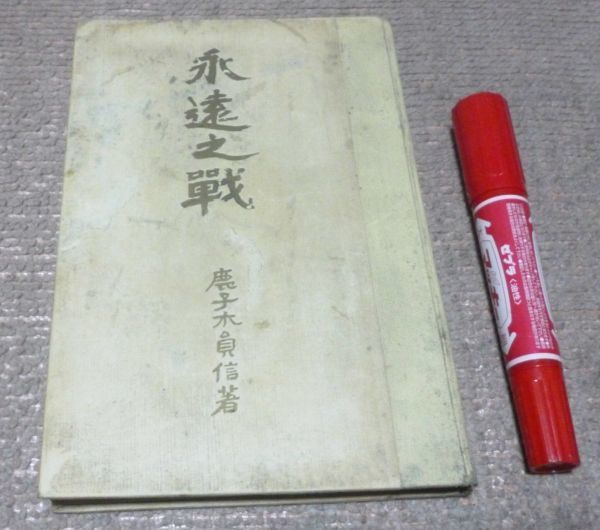 永遠之戰
鹿子木員信著
ゼブラ〈油性〉